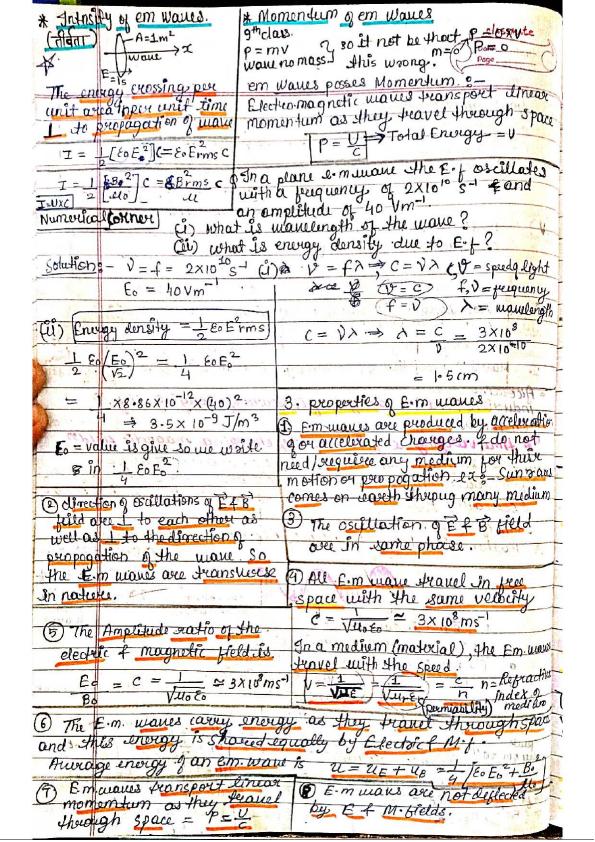 * Intensity of em waves.
(तीव्रता)
A = 1m²
wave x
E = 1s
The energy crossing per
unit area in per unit time
⊥ to propagation of wave
I = 1/2 [ε₀E₀²]C = ε₀E²rms C
I = 1/2 [B₀²/μ₀] C = B²rms C/μ
I = U×C
* Momentum of em waves
9th class.
P = mv
wave no mass
so it not be that
this wrong.
m = 0
P = 0
Date
Page
em waves posses Momentum. :-
Electromagnetic waves transport linear
momentum as they travel through space
P = U/C → Total Energy = U
Numerical Corner
In a plane e.m wave the E.f oscillates
with a frequency of 2×10¹⁰ s⁻¹ and
an amplitude of 40 Vm⁻¹
(i) what is wavelength of the wave?
(ii) what is energy density due to E.f?
Solution:- ν = f = 2×10¹⁰ s⁻¹
E₀ = 40 Vm⁻¹
(i) V = fλ ⇒ C = νλ
C, V = speed of light
f, ν = frequency
λ = wavelength
V = C
f = ν
C = νλ ⇒ λ = C/ν = 3×10⁸/2×10¹⁰
= 1.5 cm
(ii) Energy density = 1/2 ε₀E²rms
1/2 ε₀ (E₀/√2)² = 1/4 ε₀E₀²
= 1/4 × 8.86×10⁻¹² × (40)²
⇒ 3.5 × 10⁻⁹ J/m³
E₀ = value is give so we write
in 1/4 ε₀E₀²
3. properties of E.m waves
① E.m waves are produced by acceleration
or accelerated charges. & do not
need/require any medium for their
motion or propogation ex:- Sun rays
comes on earth thrpug many medium
② direction of oscillations of E & B
feild are ⊥ to each other as
well as ⊥ to the direction of
propagation of the wave. So
the E.m waves are transverse
in nature.
③ The oscillation of E & B field
are in same phase.
④ All E.m wave travel in free
space with the same velocity
C = 1/√μ₀ε₀ ≃ 3×10⁸ ms⁻¹
In a medium (material), the Em. waves
travel with the speed.
V = 1/√με = 1/√μrεr = c/n n = Refractive
Index of
medium
(permiability)
⑤ The Amplitude ratio of the
electric & magnetic field is
E₀/B₀ = C = 1/√μ₀ε₀ ≃ 3×10⁸ ms⁻¹
⑥ The E.m. waves carry energy as they travel through space
and this energy is shared equally by Electric f M.f.
Average energy of an em. wave is u = uE + uB = 1/4 [ε₀E₀² + B₀²/μ₀]
⑦ E.m waves transport linear
momentum as they travel
through space = P = U/C
⑧ E.m waves are not deflected
by E & M. fields.